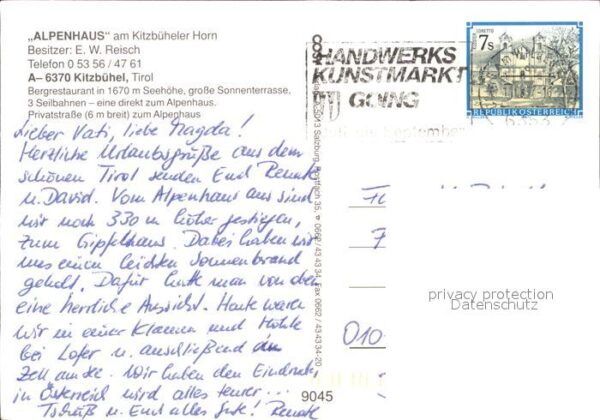 „ALPENHAUS" am Kitzbüheler Horn
Besitzer: E. W. Reisch
Telefon 0 53 56 / 47 61
A– 6370 Kitzbühel, Tirol
Bergrestaurant in 1670 m Seehöhe, große Sonnenterrasse,
3 Seilbahnen – eine direkt zum Alpenhaus.
Privatstraße (6 m breit) zum Alpenhaus.
Lieber Vati, liebe Magda!
Herzliche Urlaubsgrüße aus dem
schönen Tirol senden Euch Renate
u. David. Vom Alpenhaus aus sind
wir noch 330 m höher gestiegen,
zum Gipfelhaus. Dabei haben wir
uns einen leichten Sonnenbrand
geholt. Dafür hatte man von dort
eine herrliche Aussicht. Heute waren
wir in einer Klamm und Höhle
bei Lofer u. anschließend in
Zell am See. Wir haben den Eindruck
in Österreich wird alles teurer...
Tschüß u. Euch alles Gute! Renate
HANDWERKS
KUNSTMARKT
GOING
September
LORETTO
7s
REPUBLIK ÖSTERREICH
Salzburg, Postfach 35, 0662/43 43 34, Fax 0662/43 43 34-20
privacy protection
Datenschutz
010-
9045